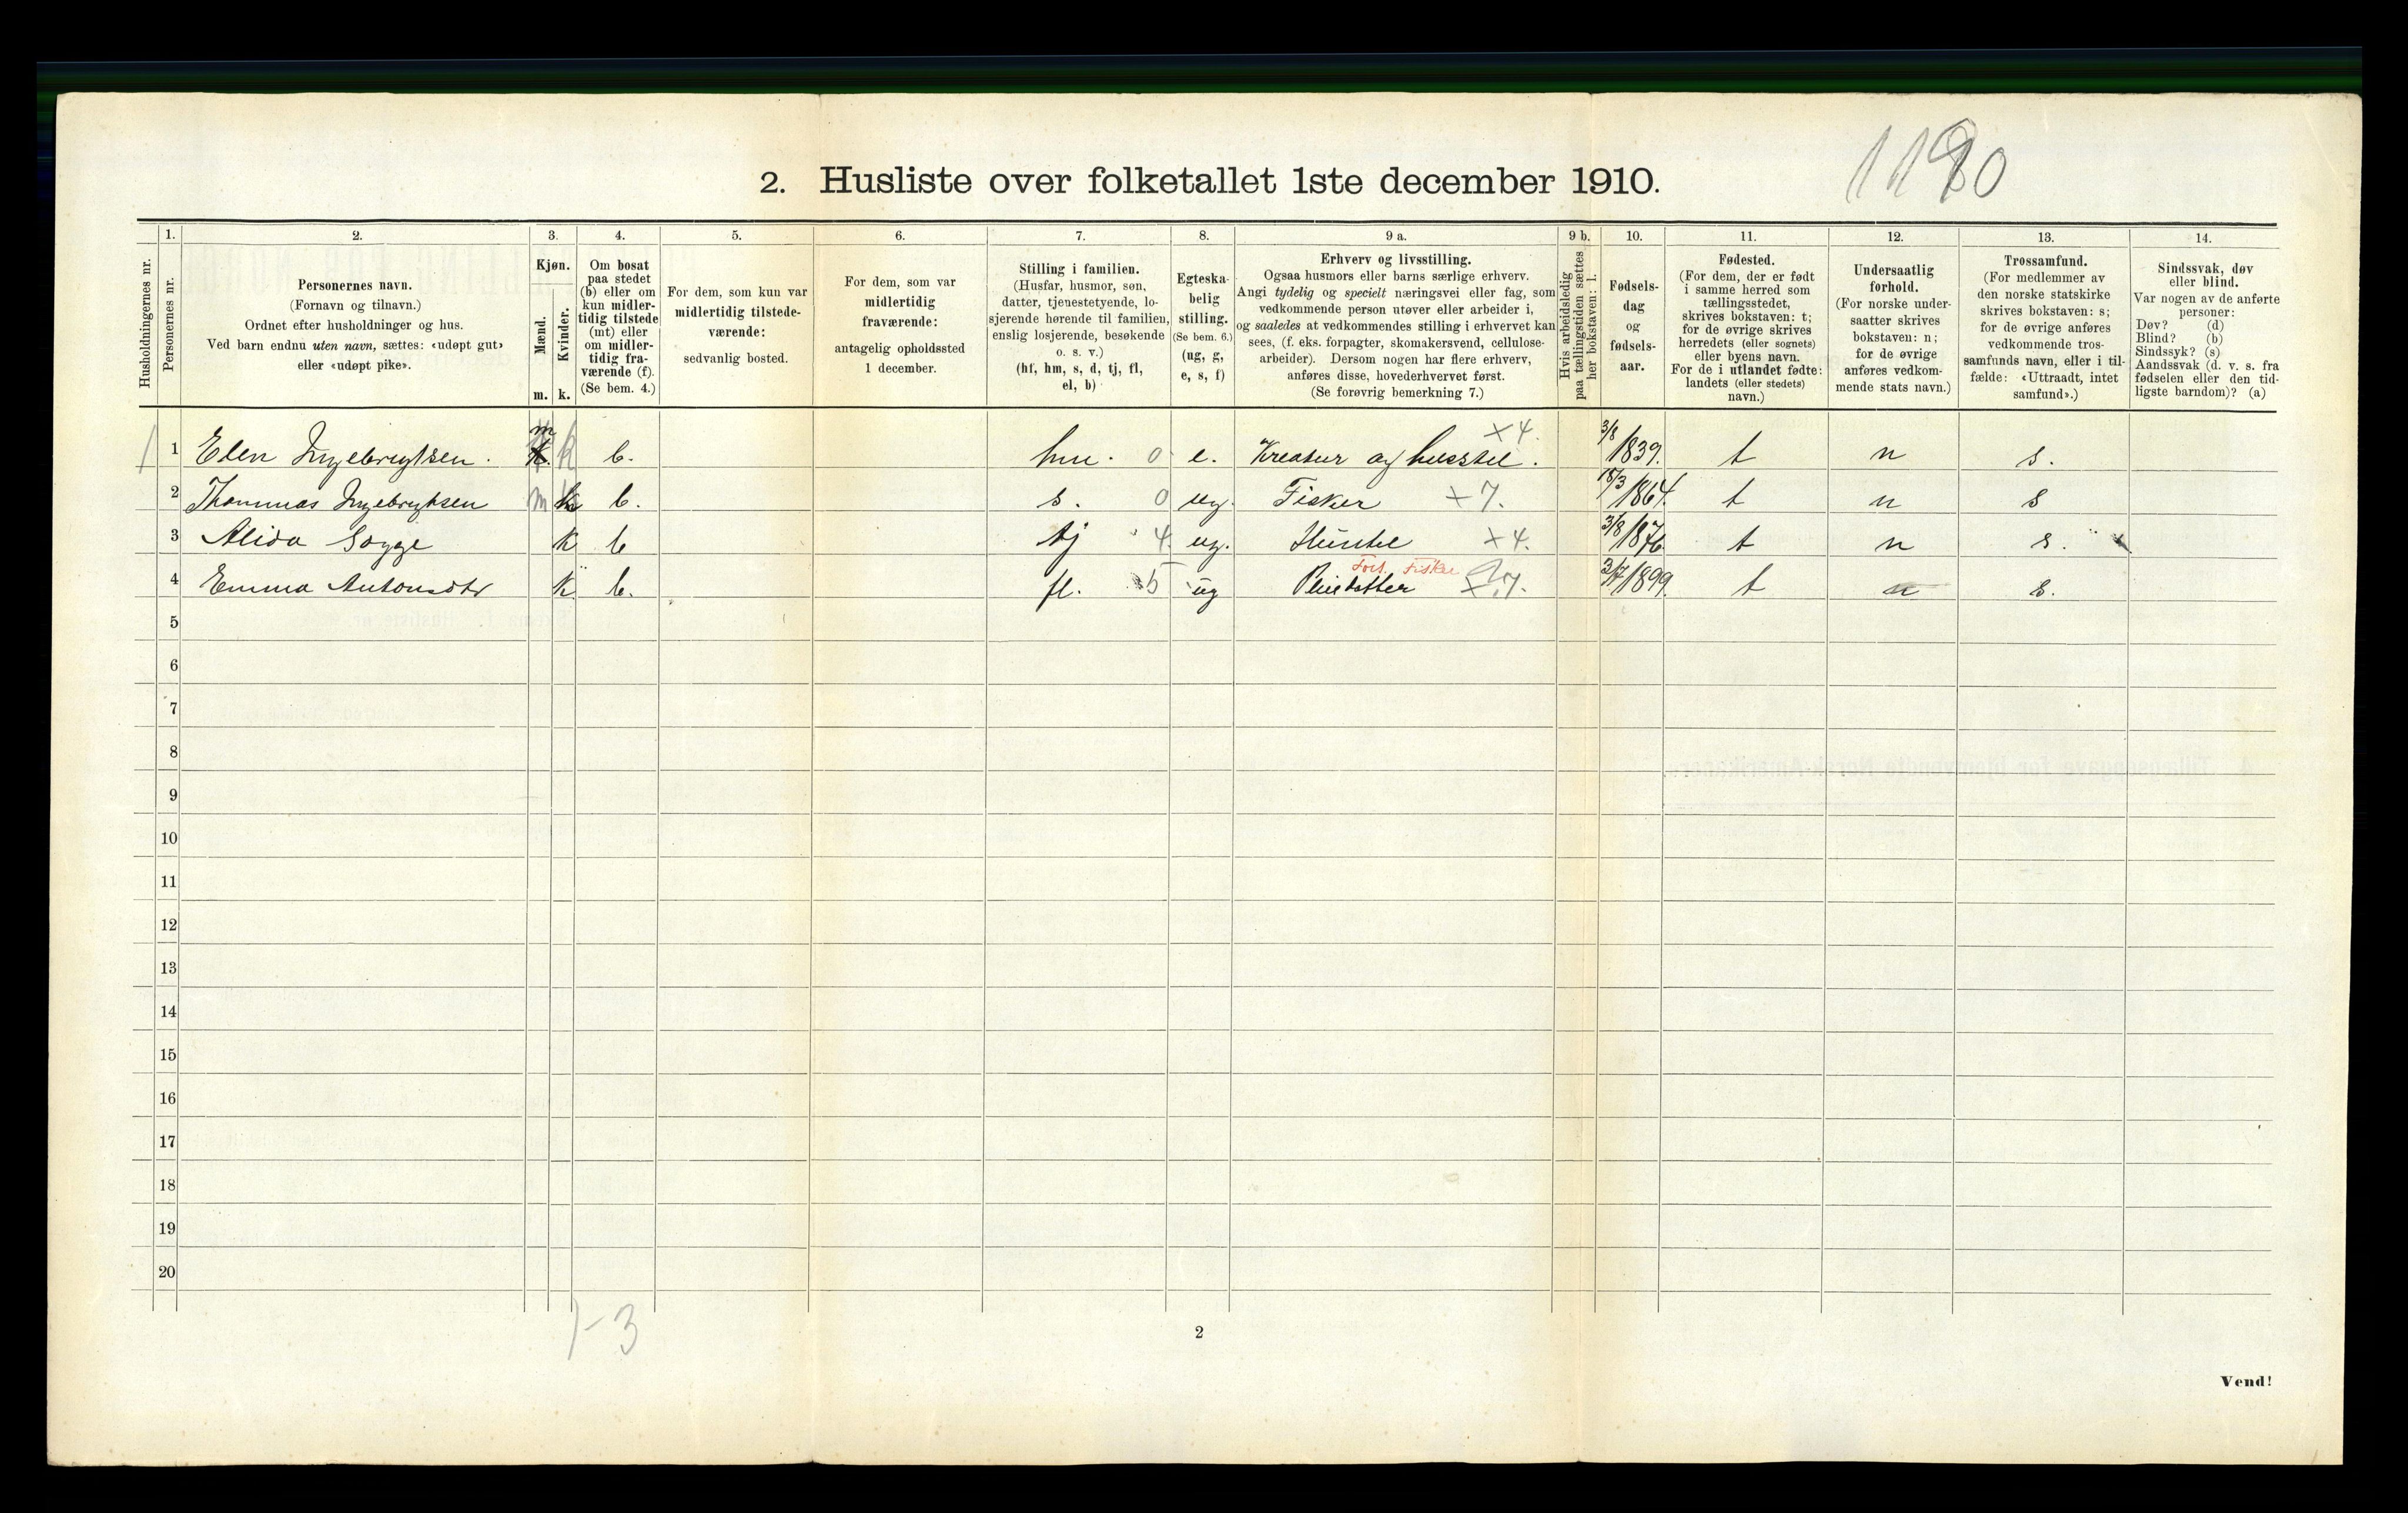 1180
2. Husliste over folketallet 1ste december 1910.
Husholdningernes nr.
1.
Personernes nr.
2.
Personernes navn.
(Fornavn og tilnavn.)
Ordnet efter husholdninger og hus.
Ved barn endnu uten navn, sættes: «udøpt gut»
eller «udøpt pike».
3.
Kjøn.
Mænd.
Kvinder.
m. k.
4.
Om bosat
paa stedet
(b) eller om
kun midler-
tidig tilstede
(mt) eller
om midler-
tidig fra-
værende (f).
(Se bem. 4.)
5.
For dem, som kun var
midlertidig tilstede-
værende:
sedvanlig bosted.
6.
For dem, som var
midlertidig
fraværende:
antagelig opholdssted
1 december.
7.
Stilling i familien.
(Husfar, husmor, søn,
datter, tjenestetyende, lo-
sjerende hørende til familien,
enslig losjerende, besøkende
o. s. v.)
(hf, hm, s, d, tj, fl,
el, b)
8.
Egteska-
belig
stilling.
(Se bem. 6.)
(ug, g,
e, s, f)
9 a.
Erhverv og livsstilling.
Ogsaa husmors eller barns særlige erhverv.
Angi tydelig og specielt næringsvei eller fag, som
vedkommende person utøver eller arbeider i,
og saaledes at vedkommendes stilling i erhvervet kan
sees, (f. eks. forpagter, skomakersvend, cellulose-
arbeider). Dersom nogen har flere erhverv,
anføres disse, hovederhvervet først.
(Se forøvrig bemerkning 7.)
9 b.
Hvis arbeidsledig
paa tællingstiden sættes
her bokstaven: l.
10.
Fødsels-
dag
og
fødsels-
aar.
11.
Fødested.
(For dem, der er født
i samme herred som
tællingsstedet,
skrives bokstaven: t;
for de øvrige skrives
herredets (eller sognets)
eller byens navn.
For de i utlandet fødte:
landets (eller stedets)
navn.)
12.
Undersaatlig
forhold.
(For norske under-
saatter skrives
bokstaven: n;
for de øvrige
anføres vedkom-
mende stats navn.)
13.
Trossamfund.
(For medlemmer av
den norske statskirke
skrives bokstaven: s;
for de øvrige anføres
vedkommende tros-
samfunds navn, eller i til-
fælde: «Uttraadt, intet
samfund».)
14.
Sindssvak, døv
eller blind.
Var nogen av de anførte
personer:
Døv? (d)
Blind? (b)
Sindssyk? (s)
Aandssvak (d. v. s. fra
fødselen eller den tid-
ligste barndom)? (a)
1 1 Elen Ingebrigtsen. k b. hm. 0 e. Kreatur og husstel. x4. 3/8 1839. t n s.
2 Thommas Ingebrigtsen m b. s. 0 ug. Fisker x7. 15/3 1864. t n s
3 Alida Sogge k b tj 4. ug. Husstel x4. 3/8 1876 t n s.
4 Emma Antonsdtr k b. fl. 5 ug Pleidatter Fors. Fisker x7. 3/7 1899. t n s.
5
6
7
8
9
10
11
12
13
14
15
16
17
18
19
20
1-3
2
Vend!